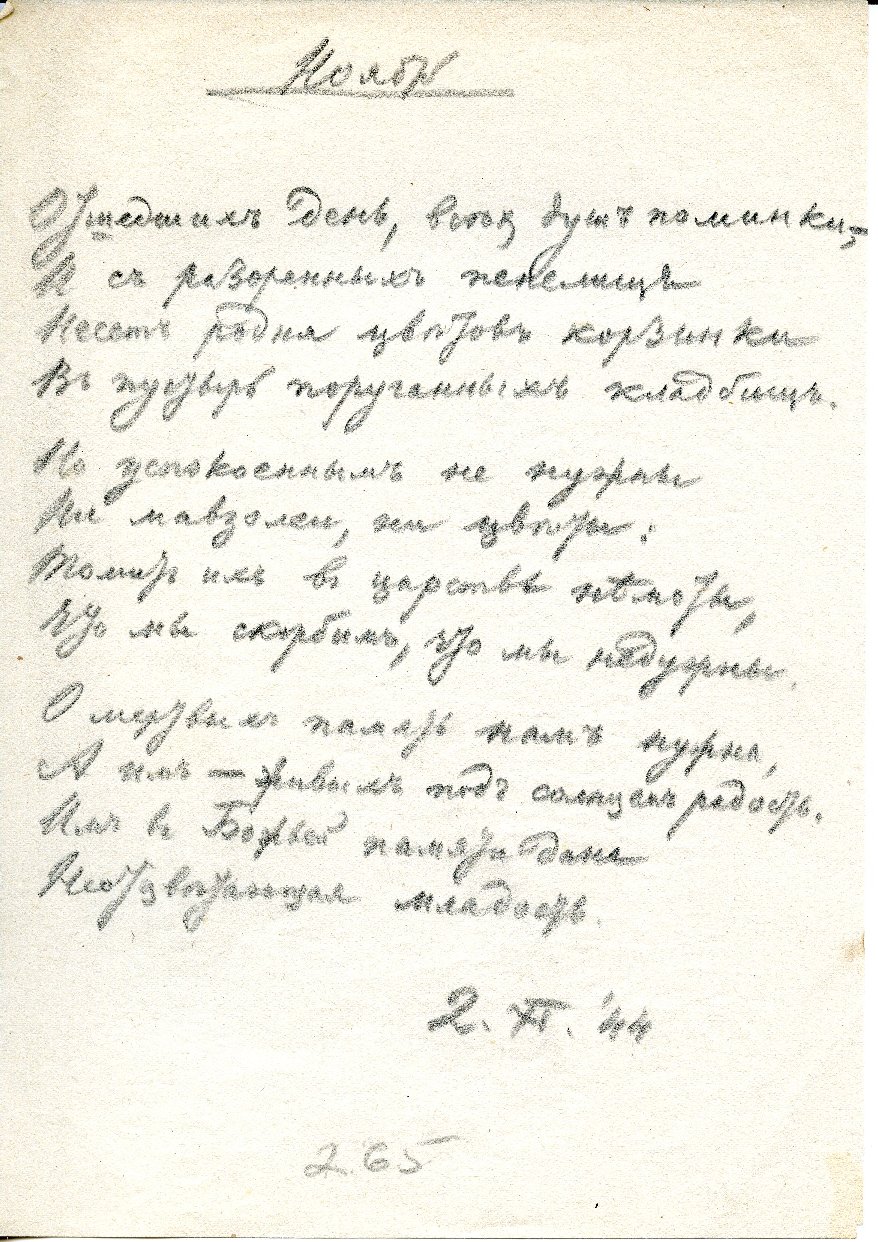 Ноябрь
Отшедшихъ день, всѣхъ душъ поминки,—
И съ разоренныхъ пепелищъ
Несетъ родня цвѣтовъ корзинки
Въ пустырь поруганныхъ кладбищъ.
Но успокоеннымъ не нужны
Ни мавзолеи, ни цвѣты:
Томитъ ихъ въ царствѣ нѣмоты,
Что мы скорбимъ, что мы недужны.
О мертвыхъ память намъ нужна,
А имъ — живыхъ подъ солнцемъ радость.
Имъ въ Божьей памяти дана
Неотцвѣтающая младость.
2. XI. '44
265